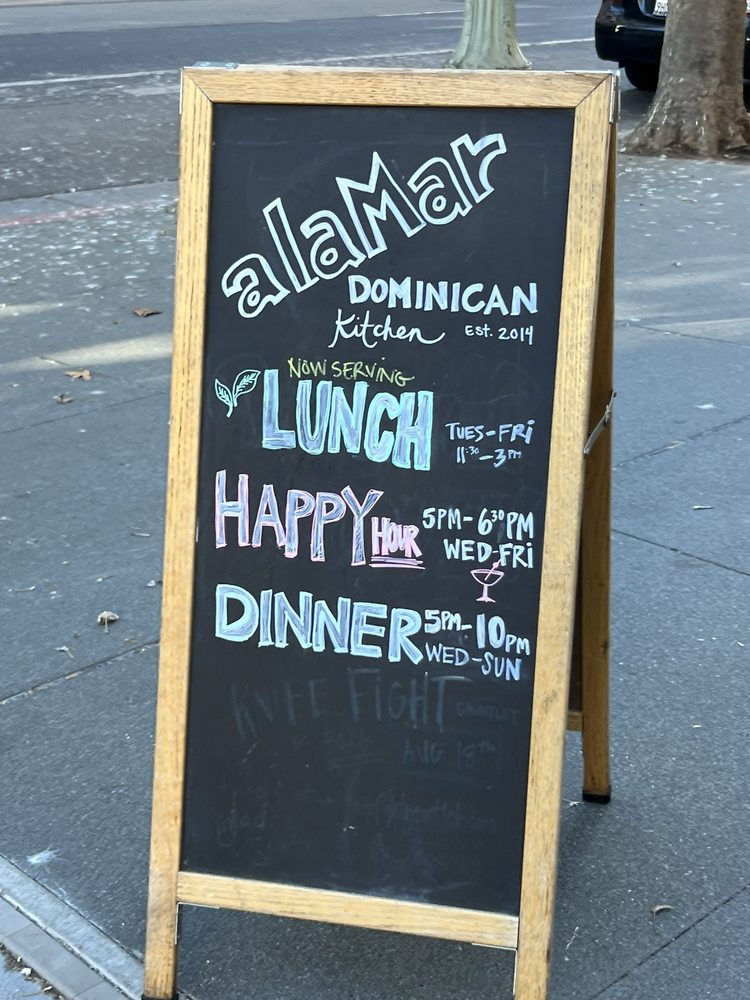 alaMar
DOMINICAN
Kitchen Est. 2014
NOW SERVING
LUNCH TUES-FRi
11:30-3pm
HAPPY HOUR 5PM-630PM
WED-FRi
DINNER 5PM-10PM
WED-SUN
KNIFE FIGHT
AUG 18th